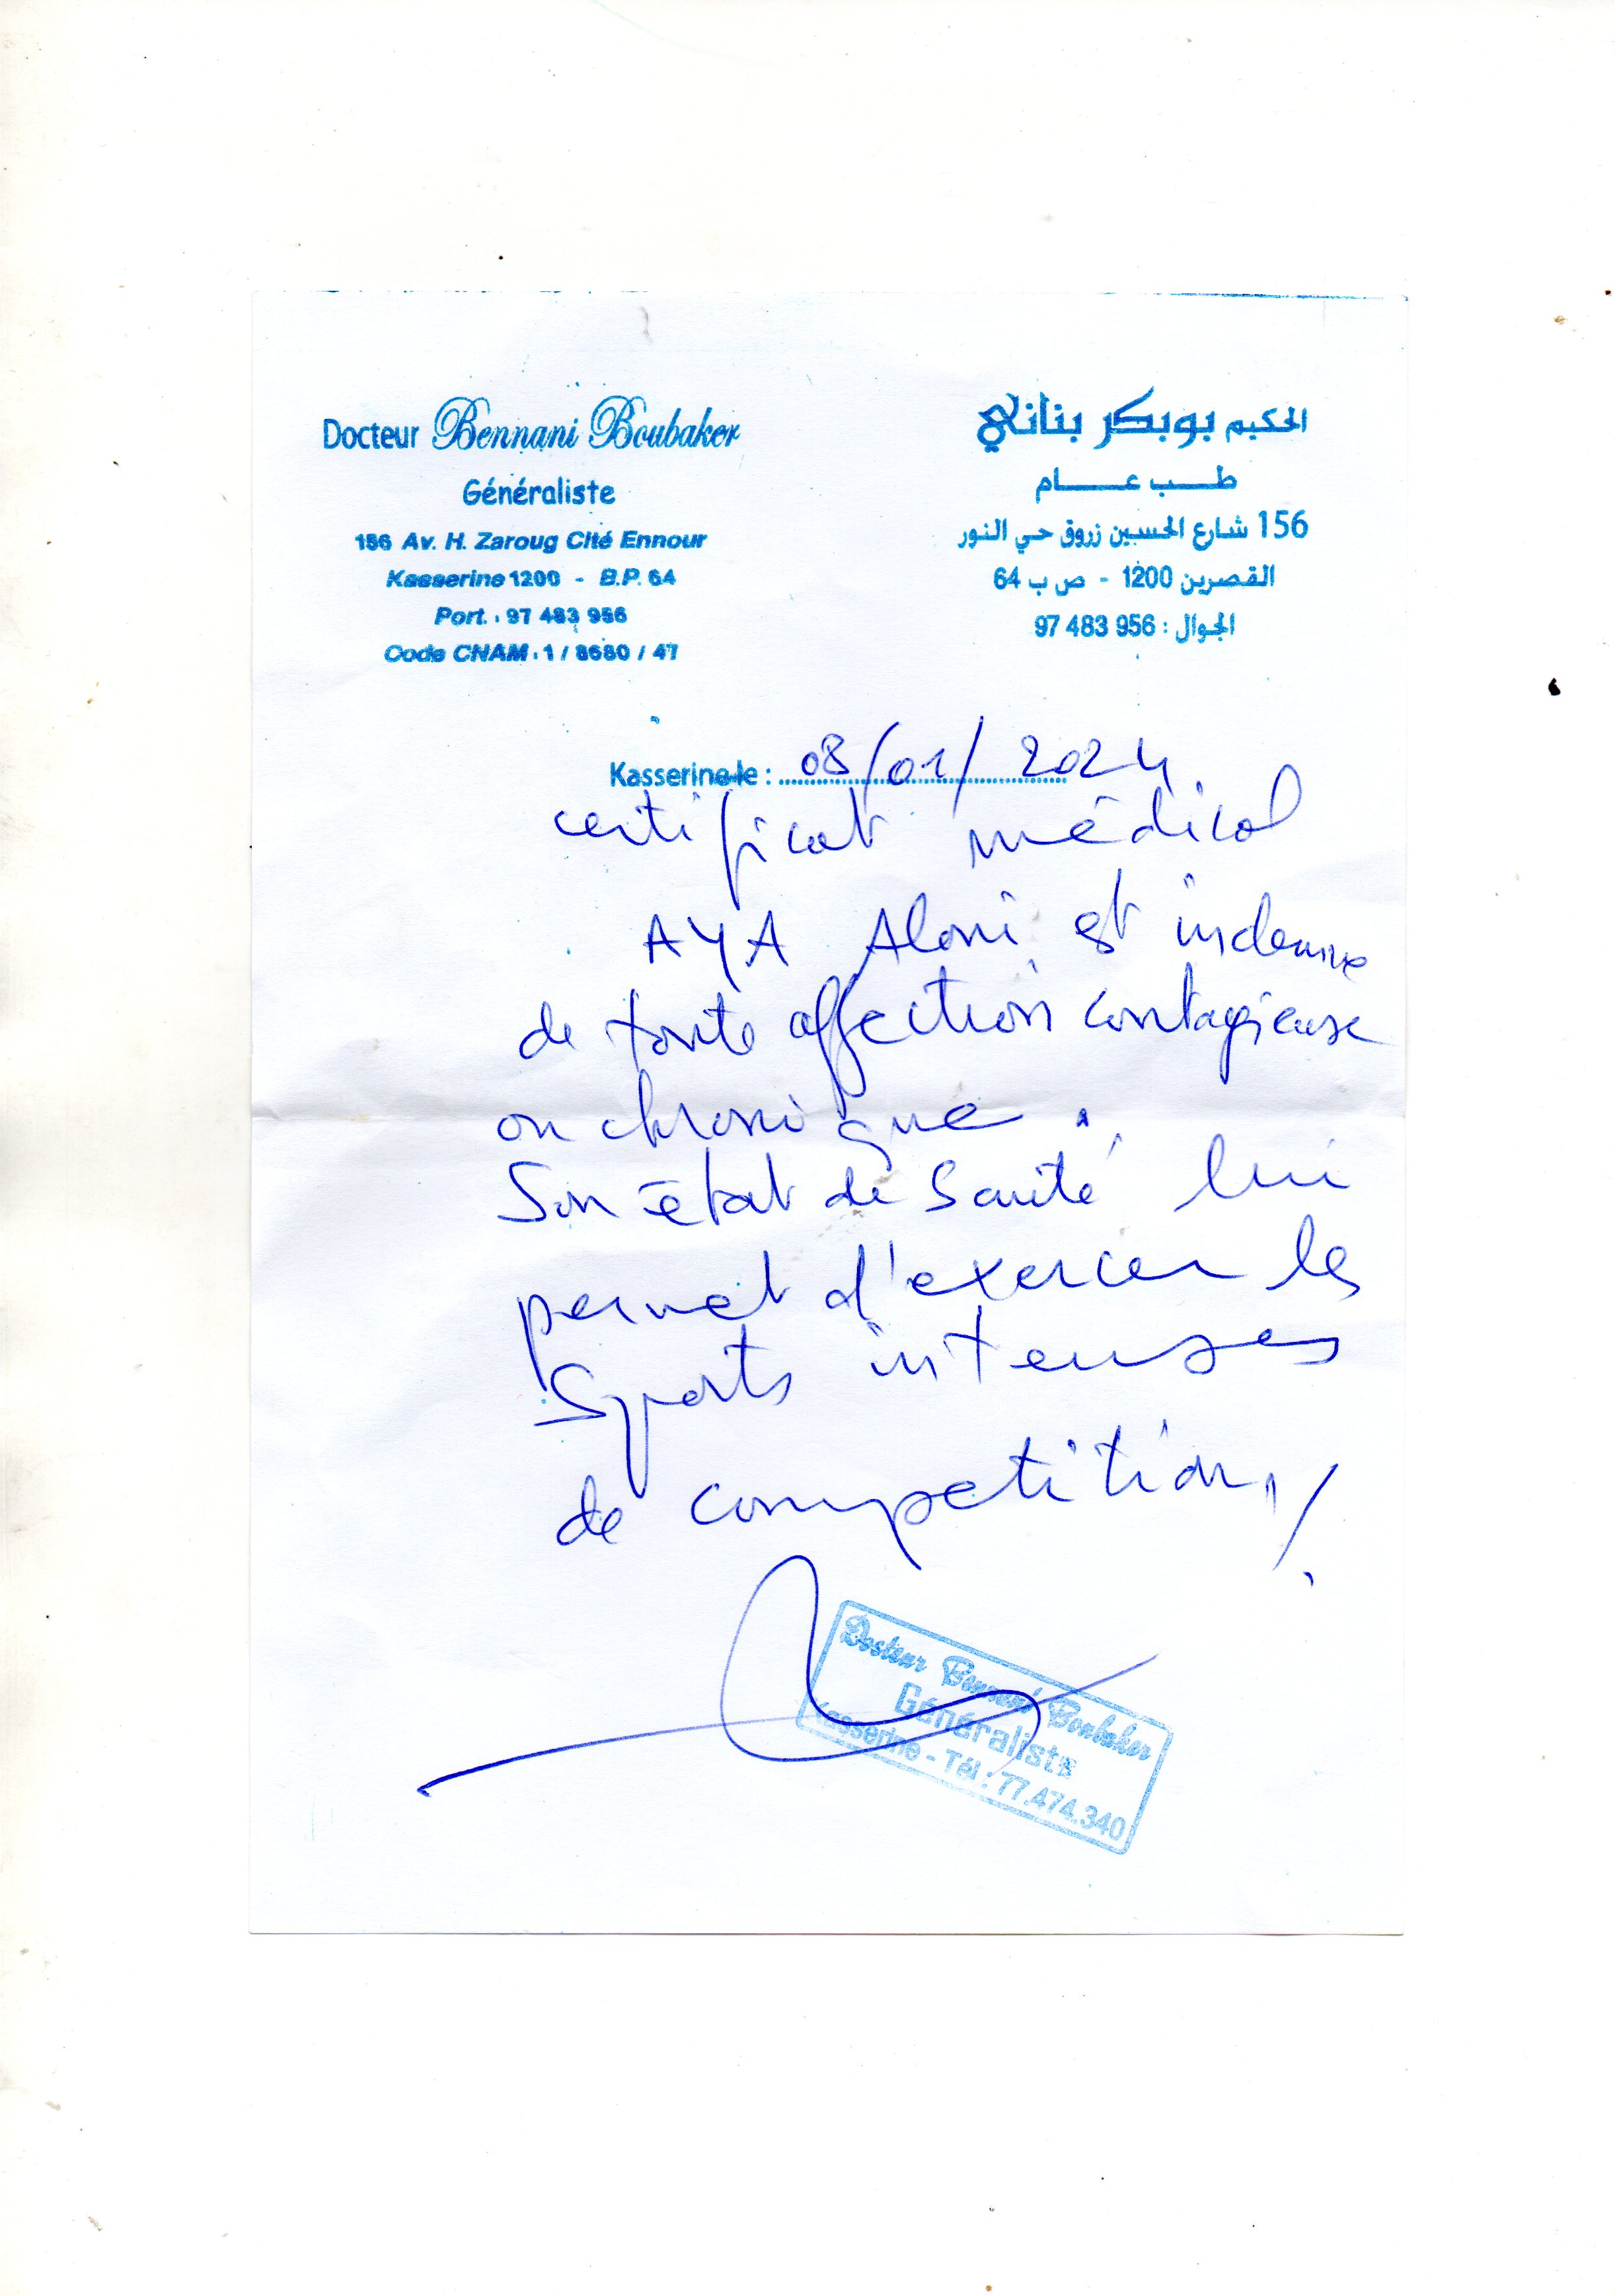 Docteur Bennani Boubaker
Généraliste
156 Av. H. Zaroug Cité Ennour
Kasserine 1200 - B.P. 64
Port. : 97 483 956
Code CNAM : 1 / 8680 / 47
الحكيم بوبكر بناني
طب عام
156 شارع الحسين زروق حي النور
القصرين 1200 - ص ب 64
الجوال : 97 483 956
Kasserine le : 08/01/2024
certificat médical
AYA Aloui est indemne
de toute affection contagieuse
ou chronique.
Son état de santé lui
permet d'exercer les
Sports intenses
de competition
Docteur Bennani Boubaker
Généraliste
Kasserine - Tél : 77.474.340